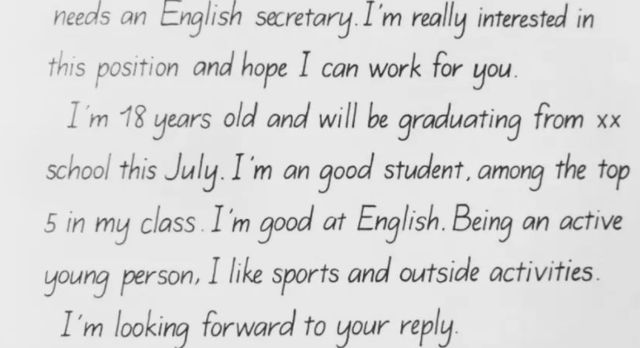 needs an English secretary. I'm really interested in
this position and hope I can work for you.
I'm 18 years old and will be graduating from xx
school this July. I'm an good student, among the top
5 in my class. I'm good at English. Being an active
young person, I like sports and outside activities.
I'm looking forward to your reply.